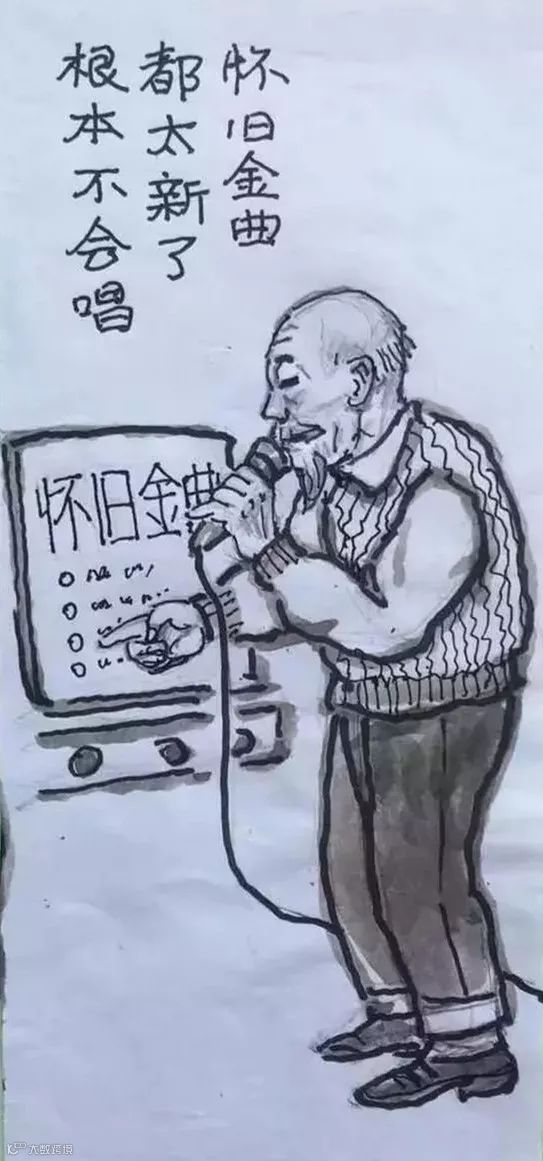 怀旧金曲
都太新了
根本不会唱
怀旧金曲
大数跨境